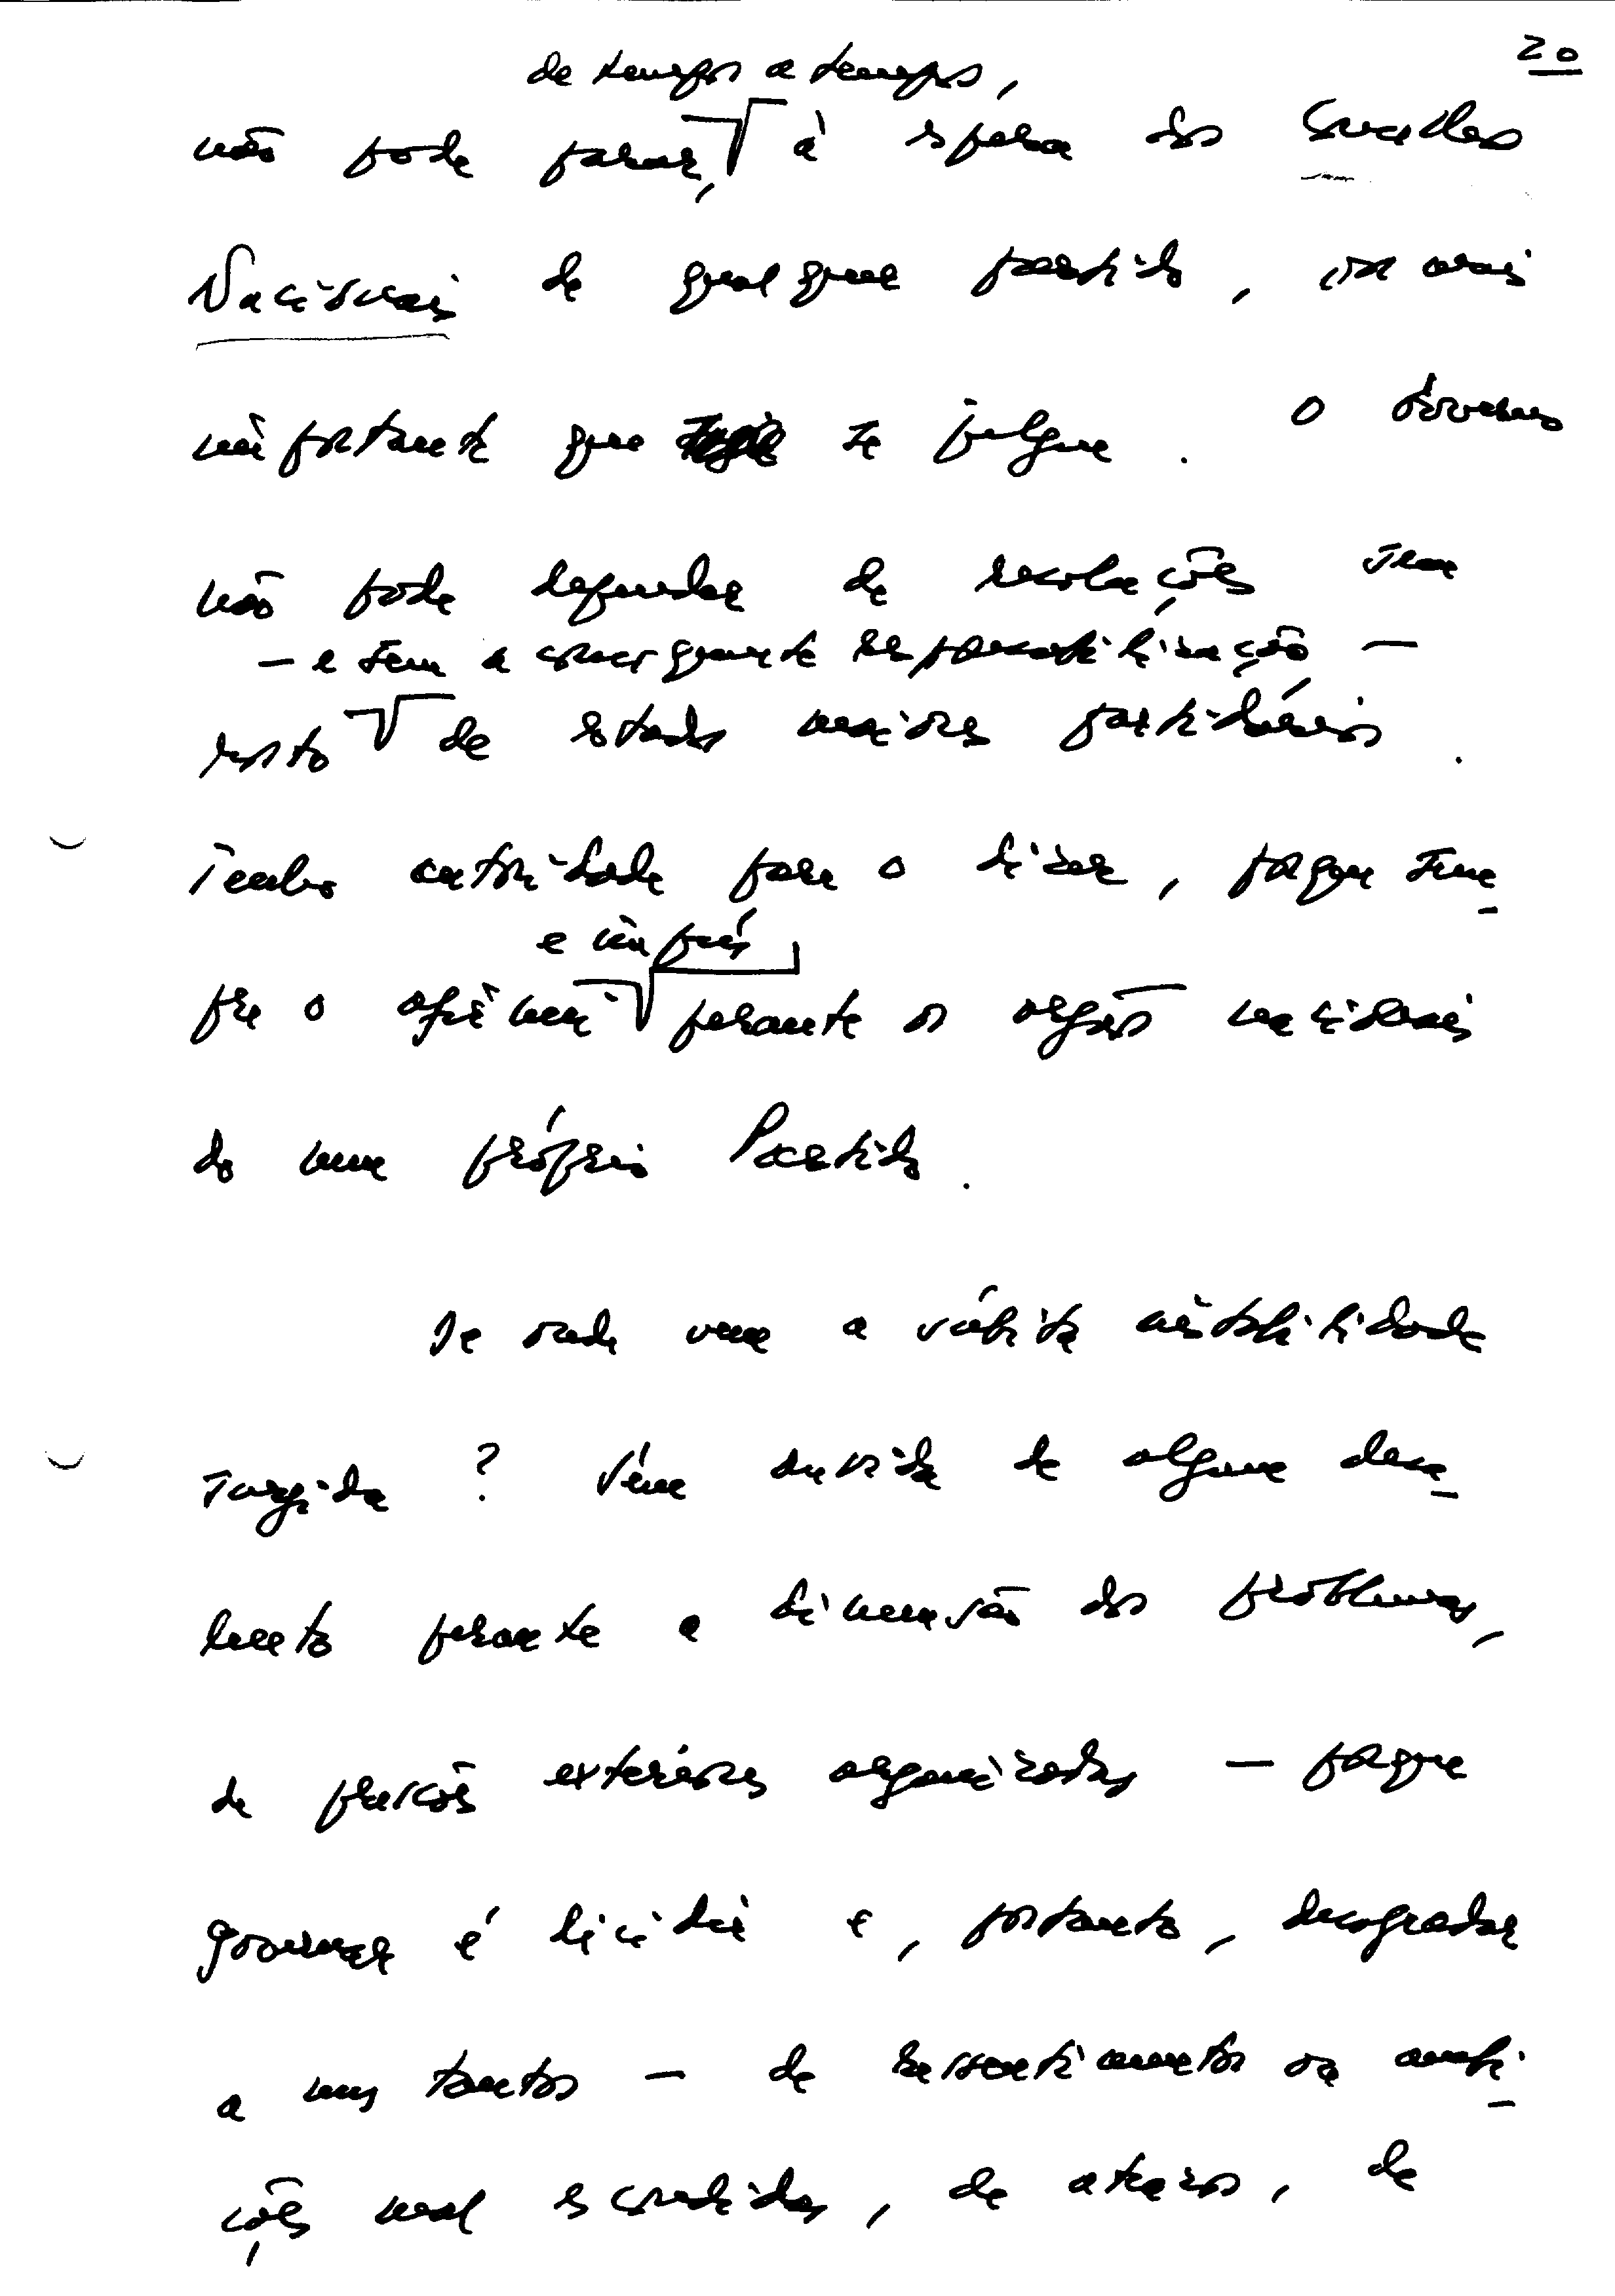 20
de tempos a tempos,
não pode parar, à espera dos Conselhos
Nacionais de qualquer partido, por mais
importante que se julgue. O Governo
não pode depender de resoluções sem
— e sem a consequente responsabilização —
rosto de estados maiores partidários.
Tenho autoridade para o dizer, porque sem-
e impus
pre o afirmei perante os orgãos nacionais
do meu próprio Partido.
De onde vem a súbita instabilidade
surgida? Vem duvida de algum desa-
lento perante a dimensão dos problemas,
de pressões exteriores organizadas — porque
governar é decidir e, portanto, desagradar
a uns tantos — de ressentimentos ou ambi-
ções mal escondidas, de atrasos, de